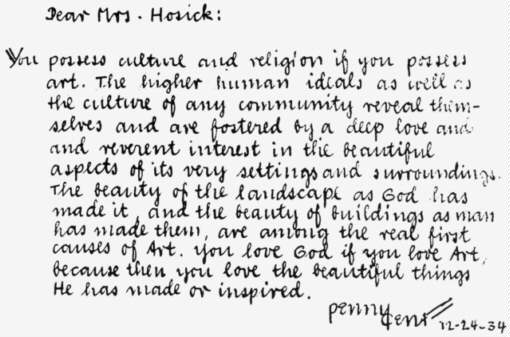 Dear Mrs. Hosick:
You possess culture and religion if you possess
art. The higher human ideals as well as
the culture of any community reveal them-
selves and are fostered by a deep love and
and reverent interest in the beautiful
aspects of its very settings and surroundings.
The beauty of the landscape as God has
made it, and the beauty of buildings as man
has made them, are among the real first
causes of Art. You love God if you love Art,
because then you love the beautiful things
He has made or inspired.
Penny Cent
12-24-34